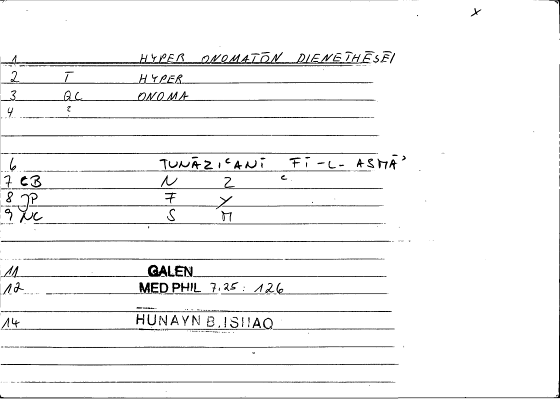 x
1 HYPER ONOMATŌN DIENĒTHĒSĒI
2 T HYPER
3 QC ONOMA
4 ?
6 TUNĀZIʿANĪ FĪ-L-ASMĀʾ
7 CB N Z ʿ
8 JP F Y
9 NC S M
11 GALEN
12 MED PHIL 7.25: 126
14 HUNAYN B.ISHAQ